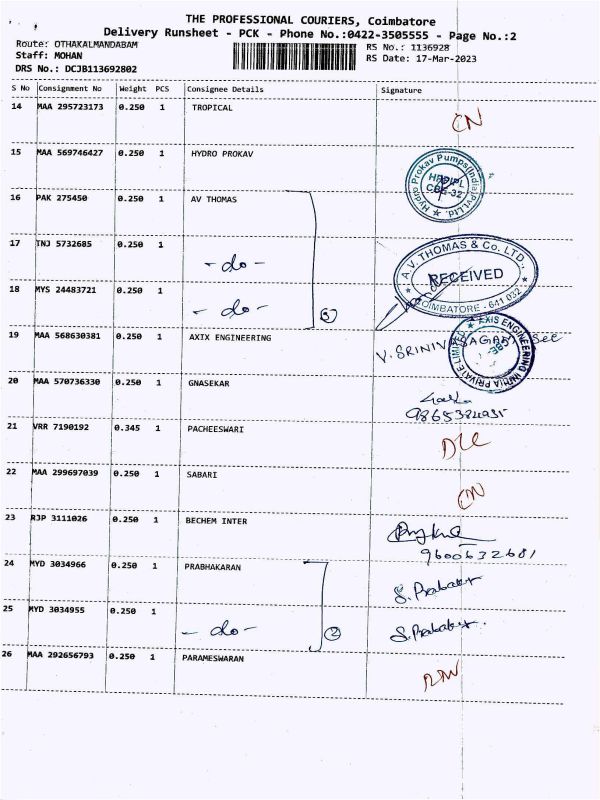 THE PROFESSIONAL COURIERS, Coimbatore
Delivery Runsheet - PCK - Phone No.:0422-3505555 - Page No.:2
Route: OTHAKALMANDABAM
RS No.: 1136928
Staff: MOHAN
RS Date: 17-Mar-2023
DRS No.: DCJB113692802
S No Consignment No Weight PCS Consignee Details Signature
14 MAA 295723173 0.250 1 TROPICAL
CN
15 MAA 569746427 0.250 1 HYDRO PROKAV
Hydro Prokav Pumps(India)Pvt.Ltd.
CBE-32
16 PAK 275450 0.250 1 AV THOMAS
17 TNJ 5732685 0.250 1
- do -
A.V. THOMAS & Co. LTD.,
RECEIVED
COIMBATORE - 641 032
18 MYS 24483721 0.250 1
- do -
3
19 MAA 568630381 0.250 1 AXIX ENGINEERING
EXIS ENGINEERING INDIA PRIVATE LIMITED
20 MAA 570736330 0.250 1 GNASEKAR
21 VRR 7190192 0.345 1 PACHEESWARI
22 MAA 299697039 0.250 1 SABARI
CN
23 RJP 3111026 0.250 1 BECHEM INTER
9600632681
24 MYD 3034966 0.250 1 PRABHAKARAN
25 MYD 3034955 0.250 1
- do -
2
26 MAA 292656793 0.250 1 PARAMESWARAN